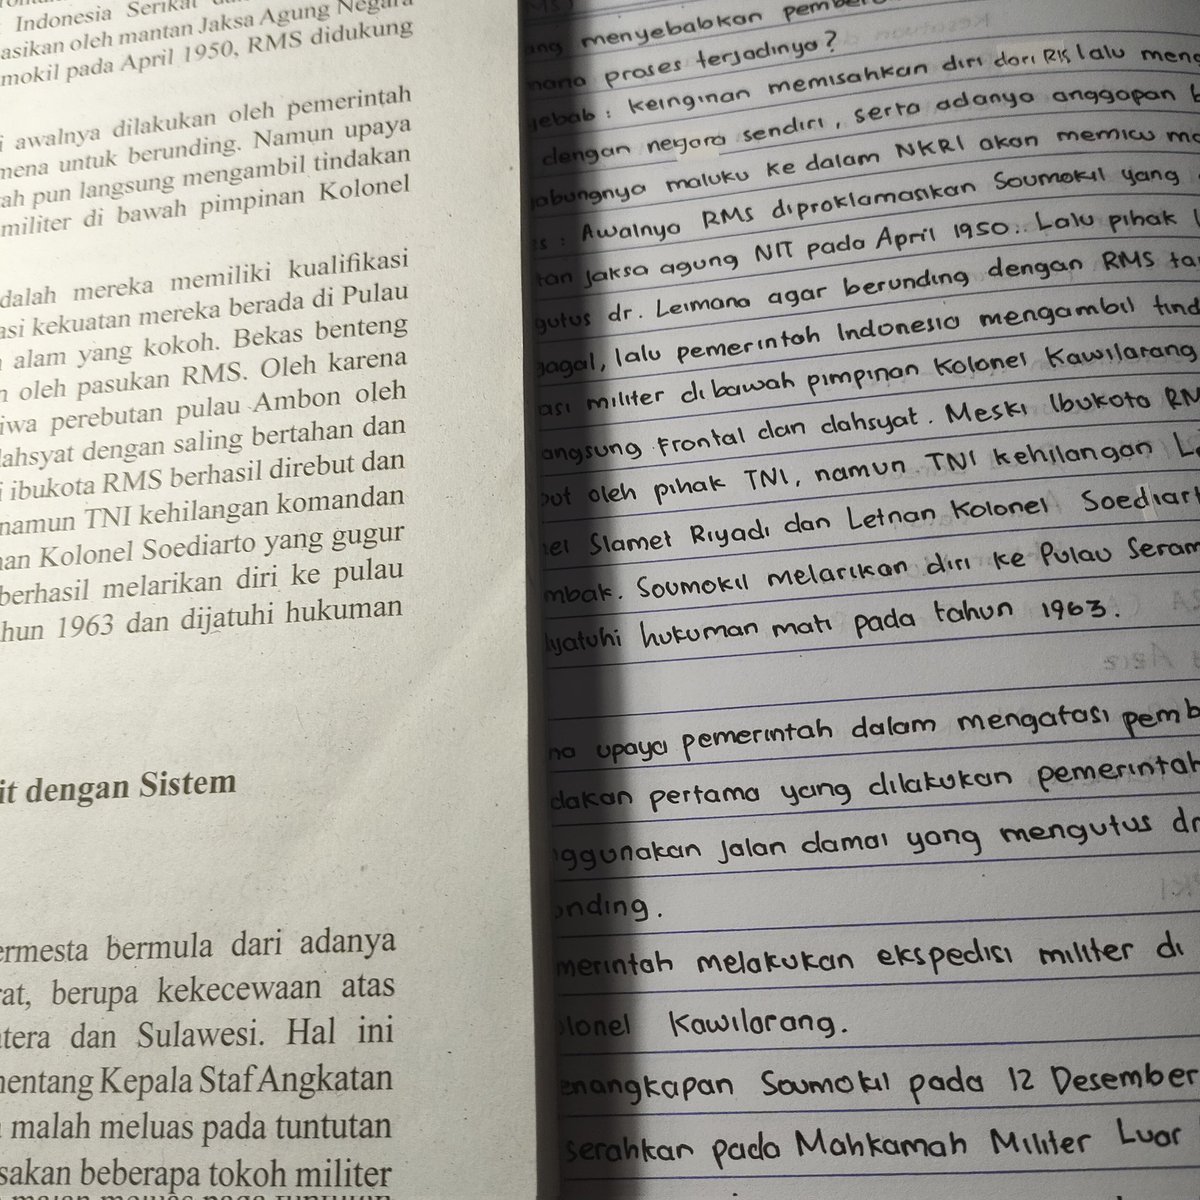 Indonesia Serikat
asikan oleh mantan Jaksa Agung Negara
mokil pada April 1950, RMS didukung
i awalnya dilakukan oleh pemerintah
mena untuk berunding. Namun upaya
ah pun langsung mengambil tindakan
militer di bawah pimpinan Kolonel
dalah mereka memiliki kualifikasi
asi kekuatan mereka berada di Pulau
alam yang kokoh. Bekas benteng
n oleh pasukan RMS. Oleh karena
iwa perebutan pulau Ambon oleh
ahsyat dengan saling bertahan dan
i ibukota RMS berhasil direbut dan
namun TNI kehilangan komandan
nan Kolonel Soediarto yang gugur
berhasil melarikan diri ke pulau
hun 1963 dan dijatuhi hukuman
it dengan Sistem
ermesta bermula dari adanya
rat, berupa kekecewaan atas
atera dan Sulawesi. Hal ini
nentang Kepala Staf Angkatan
malah meluas pada tuntutan
sakan beberapa tokoh militer
ang menyebabkan pember
mana proses terjadinya?
yebab : keinginan memisahkan diri dari RIS, lalu meng
dengan negara sendiri, serta adanya anggapan b
abungnya maluku ke dalam NKRI akan memicu ma
es : Awalnya RMS diproklamasikan Soumokil yang
tan jaksa agung NIT pada April 1950. Lalu pihak
gutus dr. Leimana agar berunding dengan RMS ta
gagal, lalu pemerintah Indonesia mengambil tind
asi militer dibawah pimpinan Kolonel Kawilarang
angsung Frontal dan dahsyat. Meski Ibukota RM
but oleh pihak TNI, namun TNI kehilangan L
nel Slamet Riyadi dan Letnan Kolonel Soediart
mbak. Soumokil melarikan diri ke Pulau Seram
ijatuhi hukuman mati pada tahun 1963.
na upaya pemerintah dalam mengatasi pemb
dakan pertama yang dilakukan pemerintah
nggunakan jalan damai yang mengutus dr
onding.
merintah melakukan ekspedisi militer di
olonel Kawilarang.
enangkapan Soumokil pada 12 Desember
serahkan pada Mahkamah Militer Luar